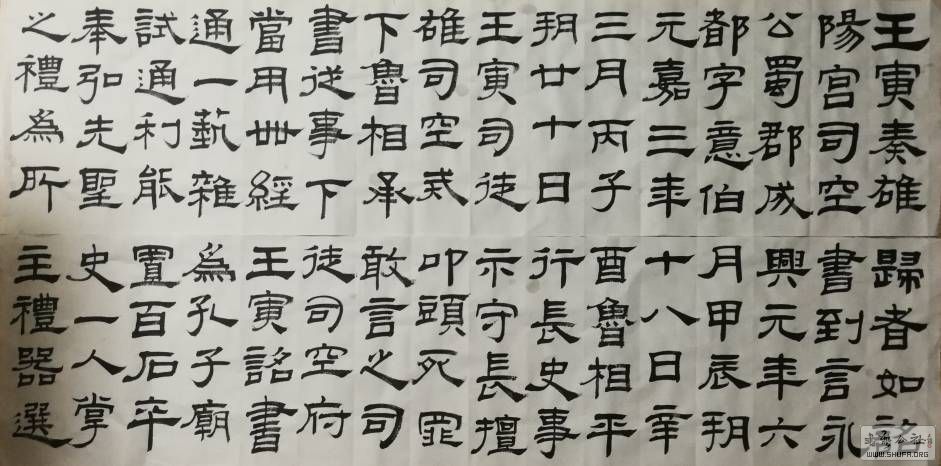 王寅奏雄
陽宮司空
公蜀郡成
都字意伯
元嘉三年
三月丙子
朔廿十日
王寅司徒
雄司空戒
下魯相承
書從事下
當用卌經
通一藝雜
試通利能
奉弘先聖
之禮為所
歸者如
書到言永
興元年六
月甲辰朔
十八日辛
酉魯相平
行長史事
卞守長擅
叩頭死罪
敢言之司
徒司空府
王寅詔書
為孔子廟
置百石卒
史一人掌
主禮器選
WWW.SHUFA.ORG